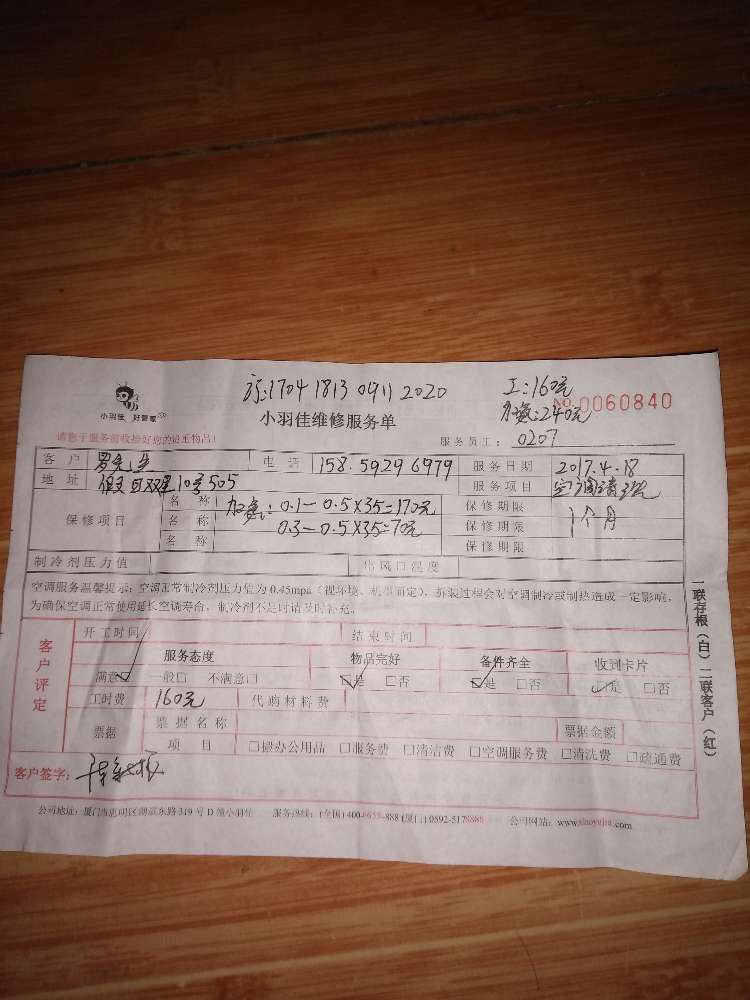 1704 1813 0911 2020
工:160元
加氨:240元
小羽佳 好管家
小羽佳维修服务单
NO.0060840
请您于服务前收拾好您的贵重物品!
服务员工: 0207
客户 罗先生 电话 158.5929 6979 服务日期 2017.4.18
地址 10号505 服务项目 空调清洗
保修项目 名称 0.1-0.5X35=170元 保修期限
名称 0.3-0.5X35=70元 保修期限 1个月
名称 保修期限
制冷剂压力值 出风口温度
空调服务温馨提示:空调正常制冷剂压力值为0.45mpa(视环境、机型而定),拆装过程会对空调制冷或制热造成一定影响,
为确保空调正常使用延长空调寿命,制冷剂不足时请及时补充。
一联存根(白)二联客户(红)
客户评定
开工时间 结束时间
服务态度 物品完好 备件齐全 收到卡片
满意 一般□ 不满意□ □是 □否 □是 □否 □是 □否
工时费 160元 代购材料费
票据 票据名称 票据金额
项目 □搬办公用品 □服务费 □清洁费 □空调服务费 □清洗费 □疏通费
客户签字:
公司地址:厦门市思明区湖滨东路319号D幢小羽佳 服务热线:(全国)400-6655-888(厦门)0592-5178888 公司网站:www.xiaoyujia.com